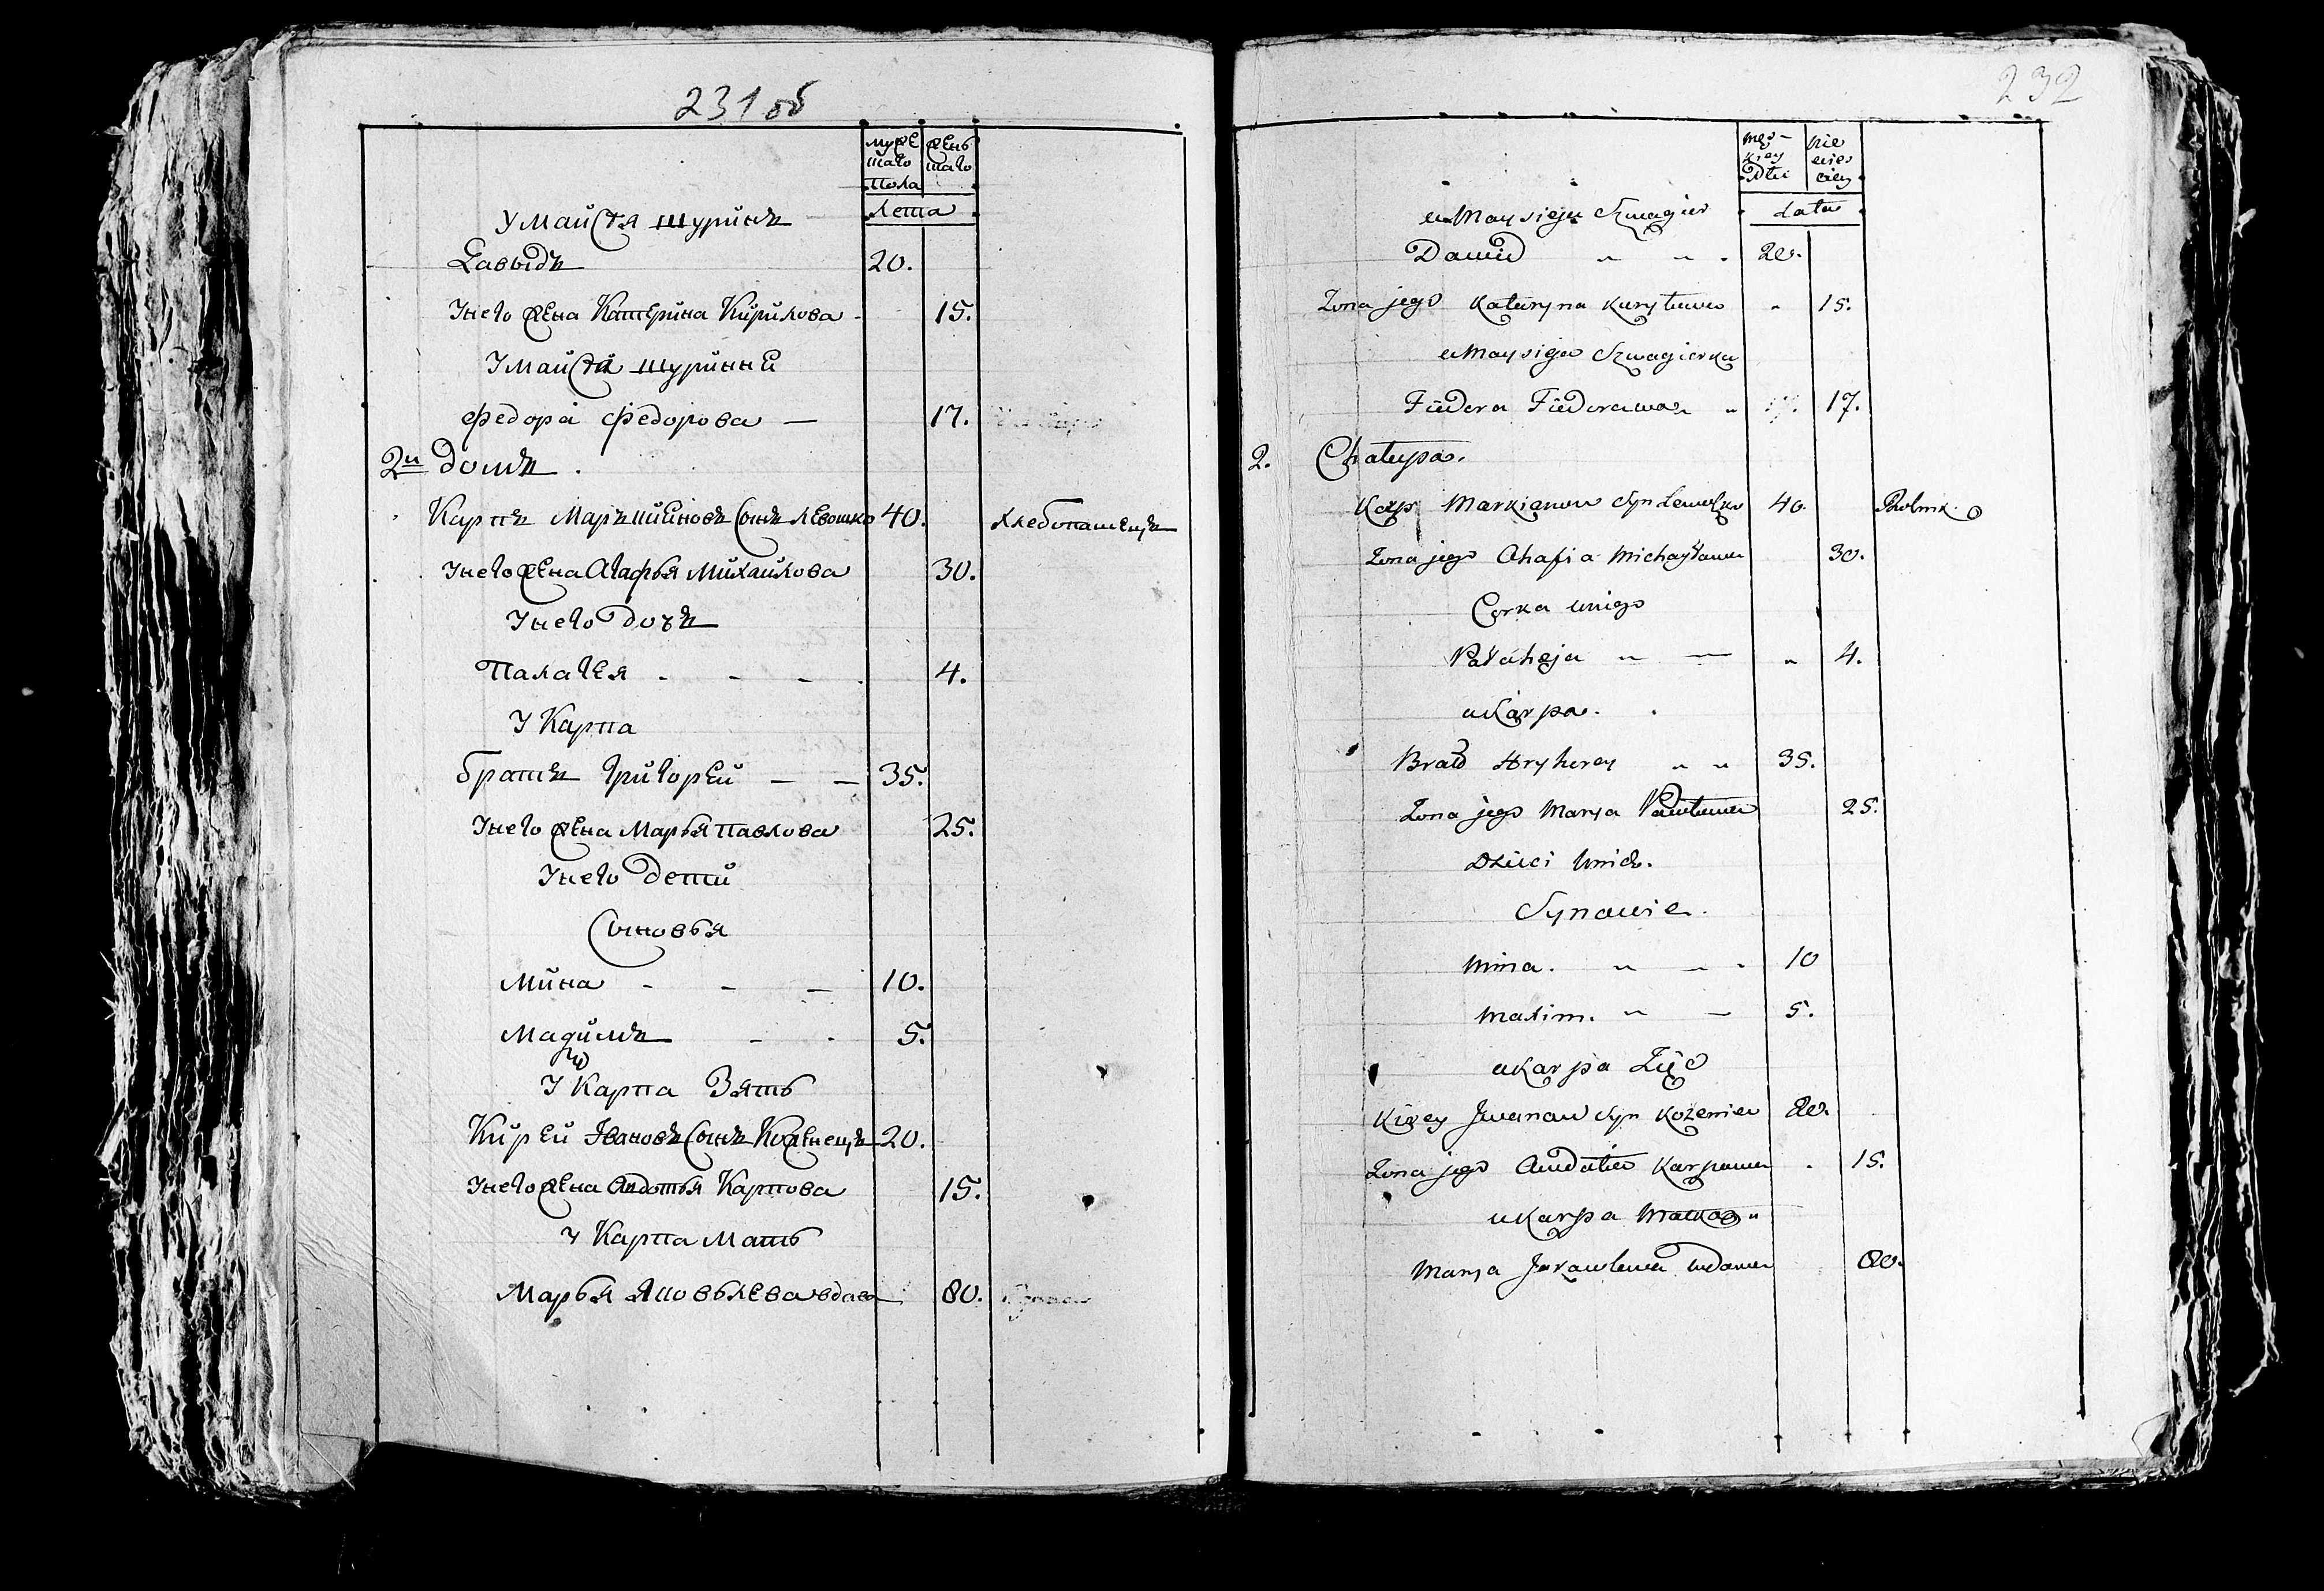 231 об
муже
шаго
пола
женъ
шаго
лета
У Майсея шуринъ
Давыдъ 20.
У него жена Катерина Кирилова - 15.
У Майсея шуринни
Федора Федорова — 17.
2й домъ.
Карпъ Маркияновъ сынъ Левошко 40. хлебопашецъ
У него жена Агафья Михайлова 30.
У него дочь
Палагея - - - 4.
У Карпа
братъ Григорей — — 35.
У него жена Марья Павлова 25.
У него дети
Сыновья
Мина - - — 10.
Мадимъ - - 5.
У Карпа Зять
Кирей Ивановъ сынъ Коженецъ 20.
У него жена Авдотья Карпова 15.
У Карпа Мать
Марья Яковьлева вдова 80.
232
męz-
kiey
Płci
nie
wies
ciey
Lata
u Maysieja Szwagier
Dawid " " . 20.
Zona jego Kateryna Kuryłowa " 15.
u Maysieja Szwagierka
Fiedora Fiedorawa " 17.
2. Chałupa.
Karp Markianow syn Lewoszko 40. Rolnik.
Zona jego Ahafia Michayłowa 30.
Corka u niego
Pałaheja " — " 4.
u Karpa.
Brat Hryhorey " " 35.
Zona jego Marya Pawłowa 25.
Dzieci u nich.
Synowie.
Mina. " - - 10
Maxim. " — 5.
u Karpa Zięć
Kirey Jwanow syn Kożeniec 20.
Zona jego Audotia Karpowa . 15.
u Karpa Matka "
Marya Jakowlewa wdowa 80.